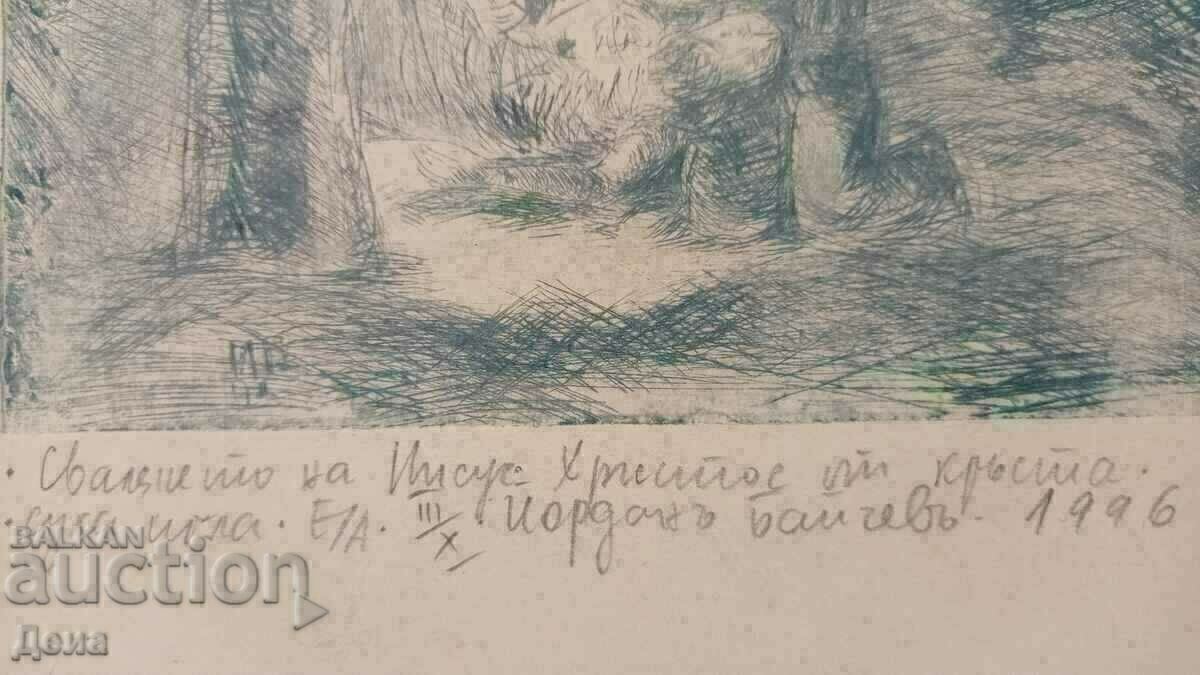 · Свалянето на Иисус Христос от кръста.
игла. E/A. III/X. Йорданъ Байчевъ. 1996
BALKAN
auction
Деиа